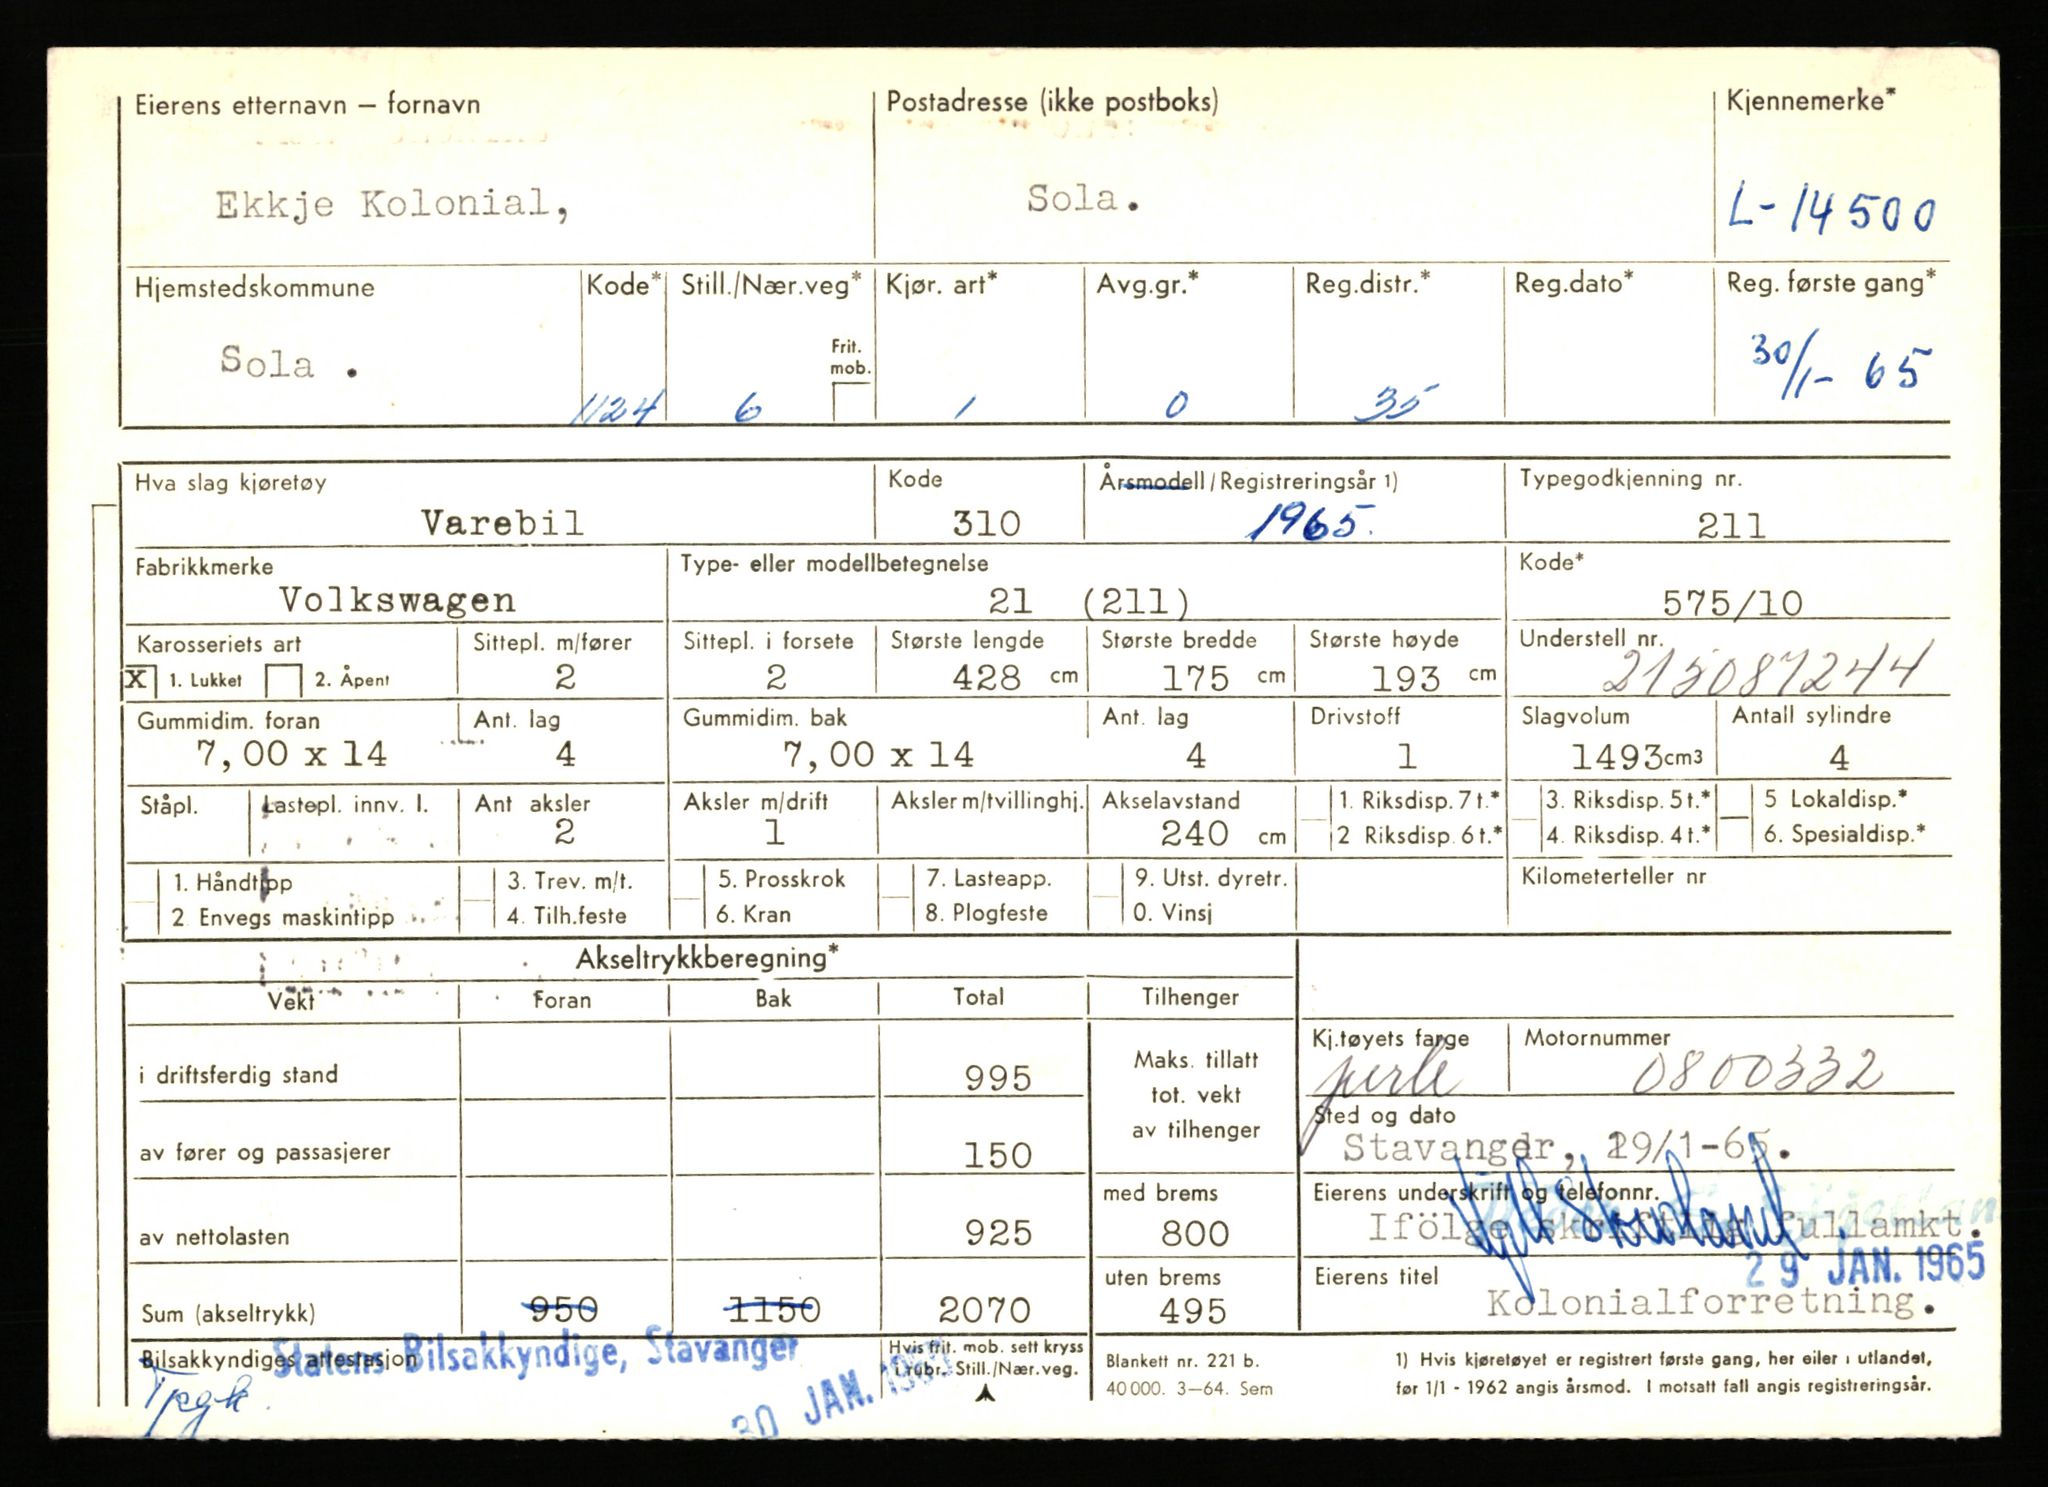 Eierens etternavn – fornavn Postadresse (ikke postboks) Kjennemerke*
Ekkje Kolonial, Sola. L-14500
Hjemstedskommune Kode* Still./Nær.veg* Kjør. art* Avg.gr.* Reg.distr.* Reg.dato* Reg. første gang*
Sola . Frit. mob. 30/1-65
1124 6 1 0 35
Hva slag kjøretøy Kode Årsmodell/Registreringsår 1) Typegodkjenning nr.
Varebil 310 1965. 211
Fabrikkmerke Type- eller modellbetegnelse Kode*
Volkswagen 21 (211) 575/10
Karosseriets art Sittepl. m/fører Sittepl. i forsete Største lengde Største bredde Største høyde Understell nr.
X 1. Lukket 2. Åpent 2 2 428 cm 175 cm 193 cm 215087244
Gummidim. foran Ant. lag Gummidim. bak Ant. lag Drivstoff Slagvolum Antall sylindre
7,00 x 14 4 7,00 x 14 4 1 1493cm3 4
Ståpl. Lastepl. innv. l. Ant aksler Aksler m/drift Aksler m/tvillinghj. Akselavstand 1. Riksdisp. 7 t.* 3. Riksdisp. 5 t.* 5 Lokaldisp.*
2 1 240 cm 2 Riksdisp. 6 t.* 4. Riksdisp. 4 t.* 6. Spesialdisp.*
1. Håndtipp 3. Trev. m/t. 5. Prosskrok 7. Lasteapp. 9. Utst. dyretr. Kilometerteller nr
2 Envegs maskintipp 4. Tilh.feste 6. Kran 8. Plogfeste 0. Vinsj
Akseltrykkberegning*
Vekt Foran Bak Total Tilhenger
Kj.tøyets farge Motornummer
i driftsferdig stand 995 Maks. tillatt perle 0800332
tot. vekt Sted og dato
av fører og passasjerer 150 av tilhenger Stavanger, 29/1-65.
med brems Eierens underskrift og telefonnr.
av nettolasten 925 800 Ifölge skriftlig fullamkt.
29 JAN. 1965
uten brems Eierens titel
Sum (akseltrykk) 950 1150 2070 495 Kolonialforretning.
Bilsakkyndiges attestasjon Statens Bilsakkyndige, Stavanger Hvis frit. mob. sett kryss Blankett nr. 221 b. 1) Hvis kjøretøyet er registrert første gang, her eiler i utlandet,
i rubr. Still./Nær.veg. 40 000. 3–64. Sem før 1/1 - 1962 angis årsmod. I motsatt fall angis registreringsår.
30 JAN.